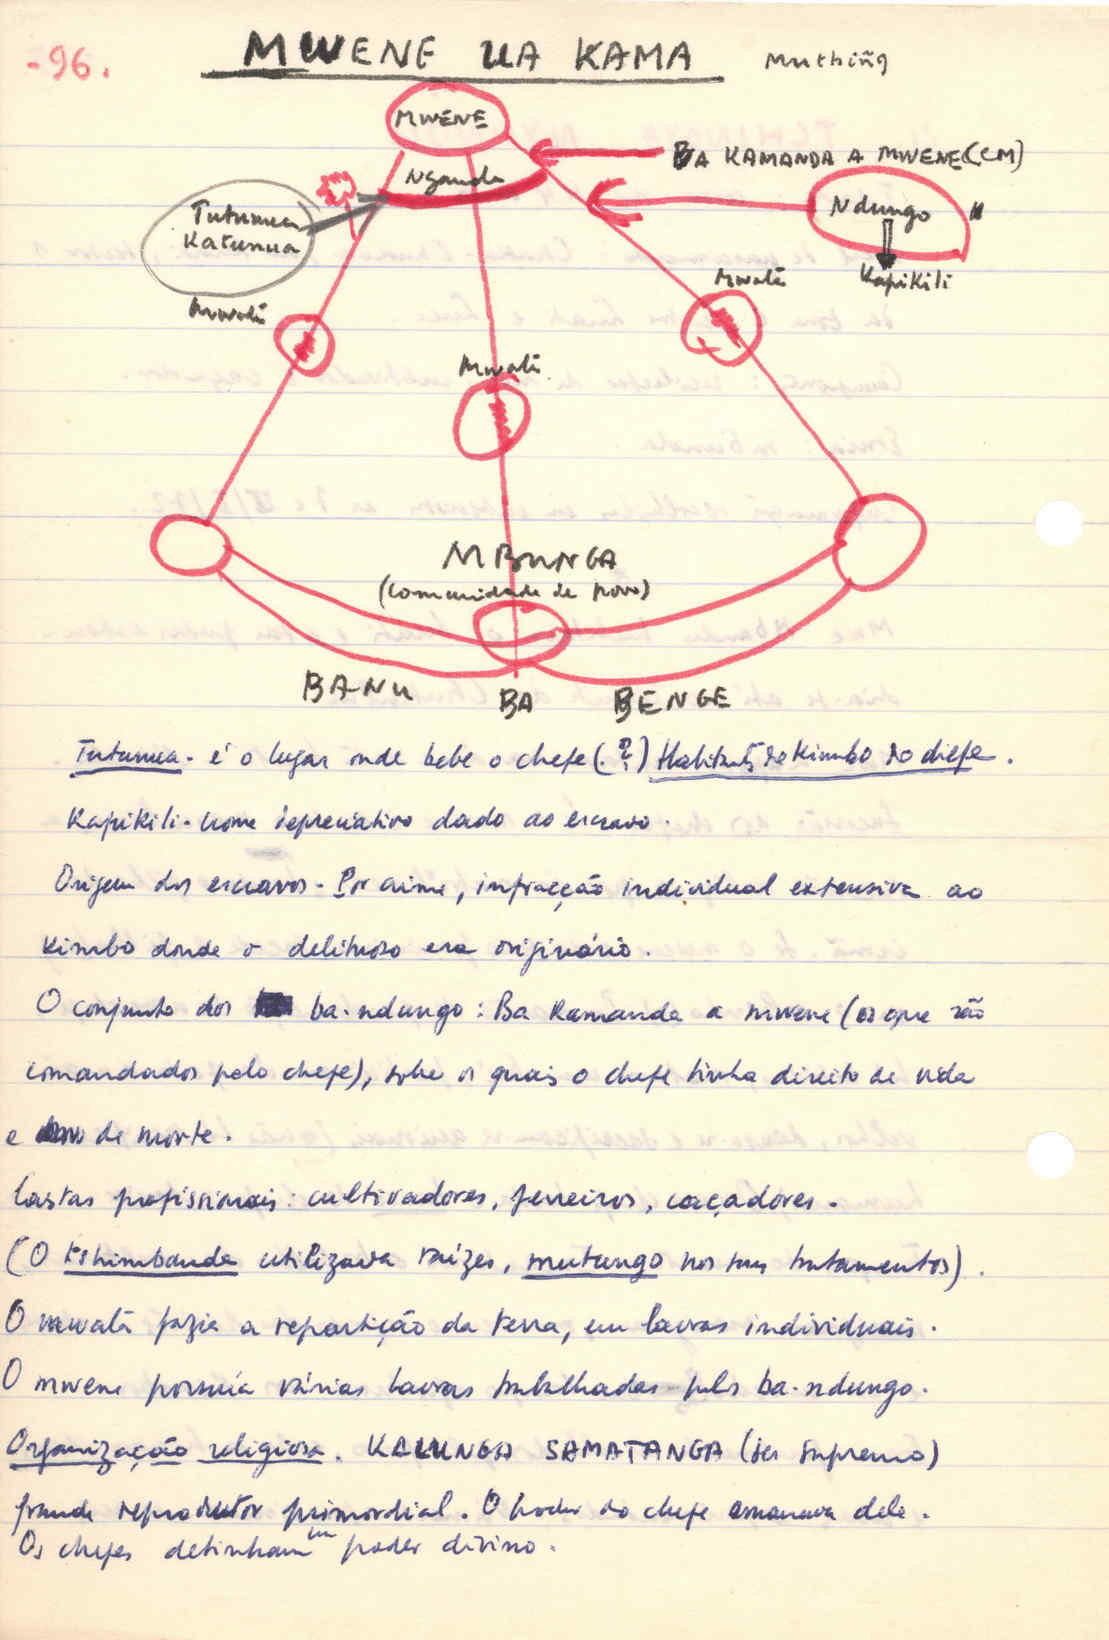 -96.
MWENE UA KAMA
MWENE
BA KAMANDA A MWENE (CM)
Nganda
Tutumua
Katumua
Ndungo "
Kapikili
Mwatâ
Mwatâ
Mwatâ
MBUNGA
(comunidade de povo)
BANU BA BENGE
Tutumua - é o lugar onde bebe o chefe (?) Habitantes do Kimbo do chefe.
Kapikili - nome depreciativo dado ao escravo.
Origem dos escravos - Por crime, infracção individual extensiva ao
kimbo donde o delituoso era originário.
O conjunto dos ba-ndungo: Ba Kamanda a mwene (os que são
comandados pelo chefe), sobre os quais o chefe tinha direito de vida
e de morte.
Castas profissionais: cultivadores, ferreiros, caçadores.
(O tshimbanda utilizava raízes, mutungo nos seus tratamentos).
O mwatâ fazia a repartição da terra, em lavras individuais.
O mwene possuía várias lavras trabalhadas pelos ba-ndungo.
Organização religiosa. KALUNGA SAMATANGA (ser supremo)
grande reprodutor primordial. O poder do chefe emanava dele.
Os chefes detinham um poder divino.